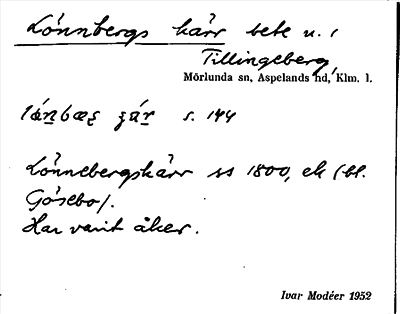 Lönnbergs kärr bete u. /
Tillingeberg,
Mörlunda sn, Aspelands hd, Klm. l.
s. 144
Lönnebergskärr ss 1800, ek (bl.
Gösebo).
Har varit åker.
Ivar Modéer 1952